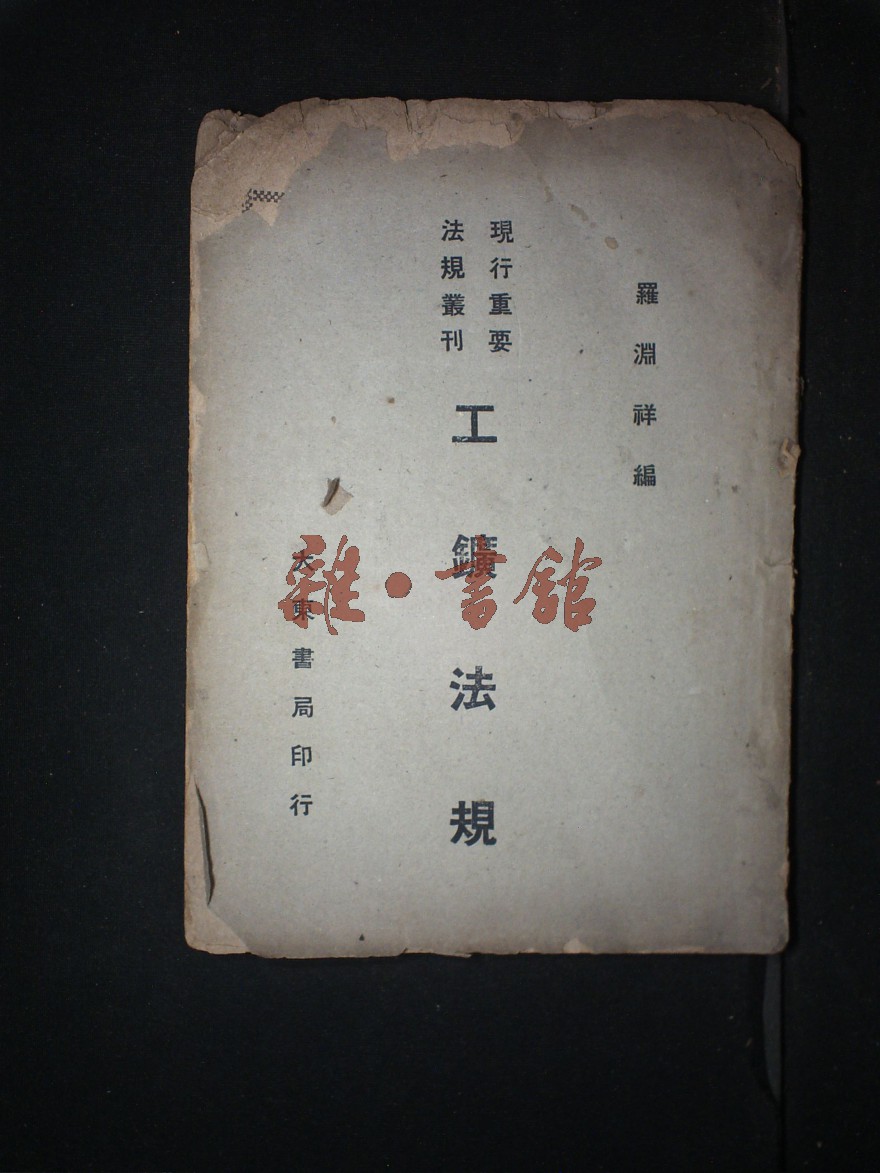 羅淵祥編
現行重要
法規叢刊
工鑛法規
大東書局印行
雜·書館